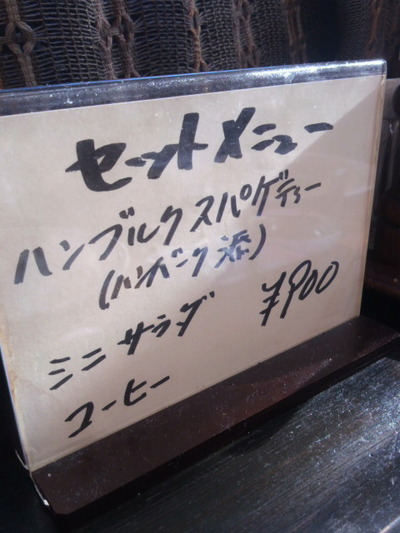 セットメニュー
ハンブルクスパゲティー
(ハンバーク添)
ミニサラダ ¥900
コーヒー